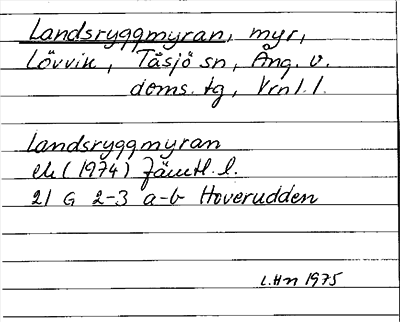 Landsryggmyran, myr,
Lövvik, Tåsjö sn, Ång. v.
doms. tg, Vrnl. l.
Landsryggmyran
ek (1974) Jämtl. l.
21 G 2-3 a-b Hoverudden
L.Hn 1975